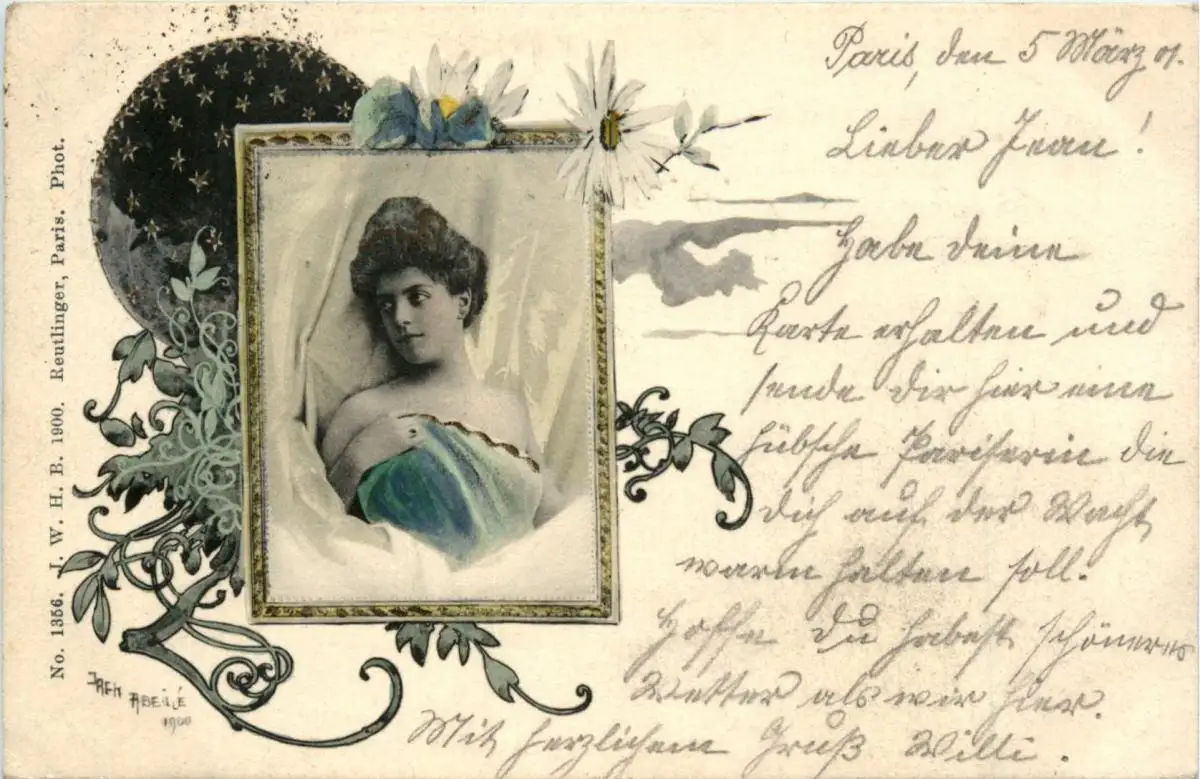 Paris, den 5 März 01.
Lieber Jean!
Habe deine
Karte erhalten und
sende dir hier eine
hübsche Pariserin die
dich auf der Wacht
warm halten soll.
Hoffe du habest schöneres
Wetter als wir hier.
Mit herzlichem Gruß Willi.
No. 1356. J. W. H. B. 1900. Reutlinger, Paris. Phot.
JACK ABEILLÉ
1900